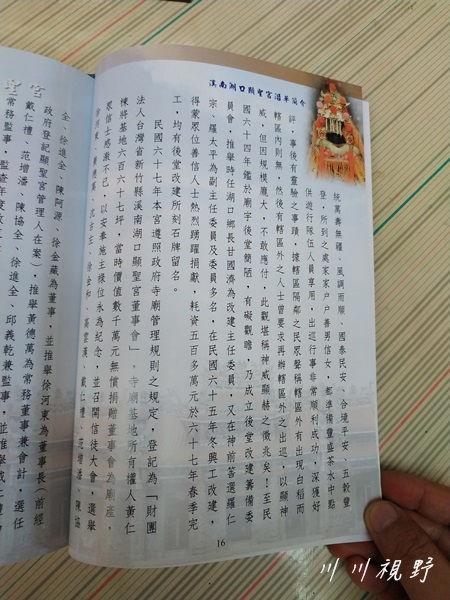 溪南湖口顯聖宮沿革簡介
統萬壽無疆、風調雨順、國泰民安、合境平安、五穀豐
登,所到之處家家戶戶善男信女,都準備豐盛茶水中點
供遊行隊伍人員享用,出巡行事非常順利成功,深獲好
評,事後有靈驗之事蹟,據轄區隔鄰之民眾聲稱轄區外有出現白稻而
轄區內則無,然後有轄區外之人士曾要求再辦轄區外之出巡,以顯神
威,但因規模龐大,不敢應付,此觀堪稱神威顯赫之徵兆矣!至民
國六十四年鑑於廟宇後堂簡陋,有礙觀瞻,乃成立後堂改建籌備委
員會,推舉時任湖口鄉長甘國濟為改建主任委員,又在神前筶選羅仁
宗、羅太平為副主任委員及委員多名,在民國六十五年冬興工改建,
得蒙眾位善信人士熱烈踴躍捐獻,耗資五百多萬元於六十七年春季完
工,均有後堂改建所刻石牌留名。
民國六十七年本宮遵照政府寺廟管理規則之規定,登記為「財團
法人台灣省新竹縣溪南湖口顯聖宮董事會」、寺廟基地所有權人黃仁
棟將基地六百六十七坪,當時價值數千萬元無償捐贈董事會為廟產,
眾信士感激不已,以安奉施主祿位永為紀念,並召開信徒大會,選舉
徐河東、黃德萬、沈方生、徐金和、高雲漢、戴仁禮、范增潘、陳協
16
聖宮
全、徐進全、陳阿源、徐金藏為董事,並推舉徐河東為董事長(前經
政府登記顯聖宮管理人在案),推舉黃德萬為常務董事兼會計,選任
戴仁禮、范增潘、陳協全、徐進全、邱義乾兼監事,並推舉戴仁禮為
常務監事,監查年度
川川視野